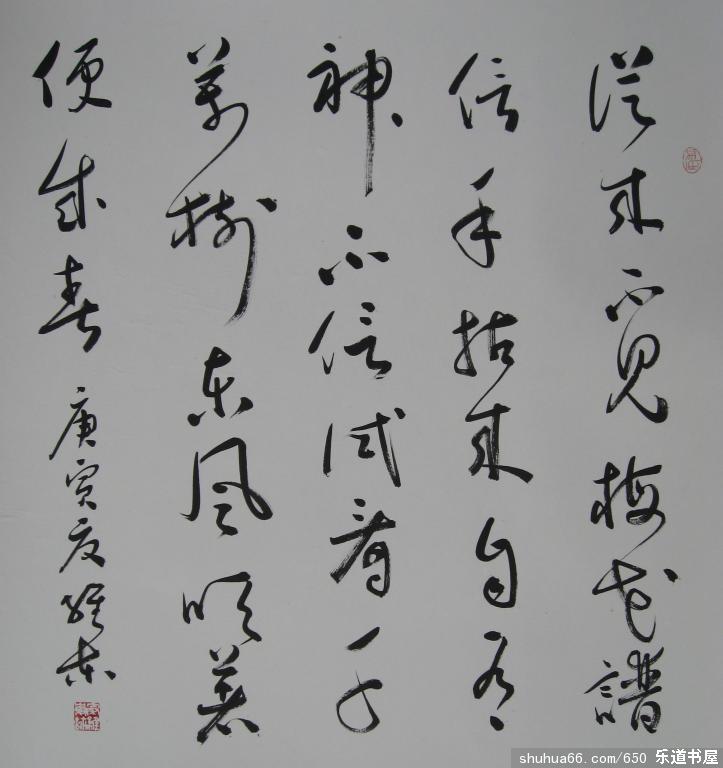 從來不見梅花譜
信手拈來自有
神不信試看千
萬樹東風吹著
便成春 庚寅夏
shuhua66.com/650 乐道书屋